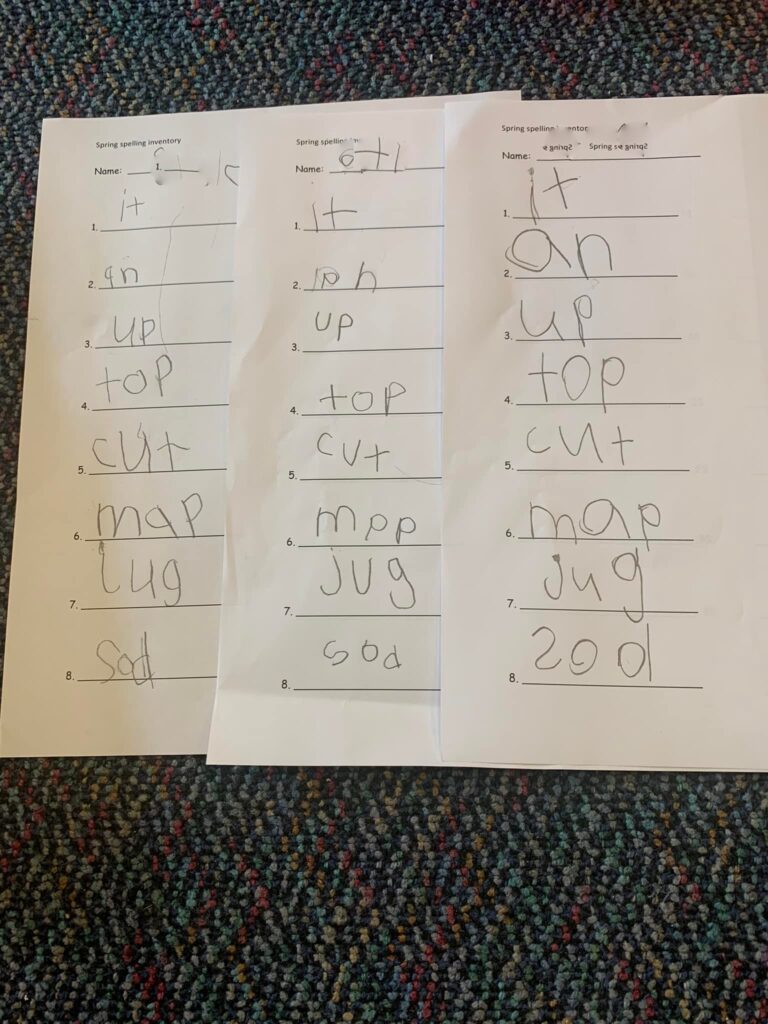 Spring spelling inventory
Name:
1. it
2. an
3. up
4. top
5. cut
6. map
7. jug
8. sod
Spring spelling
Name:
1. it
2. an
3. up
4. top
5. cut
6. mpp
7. jug
8. sod
Spring spelling
Name:
1. it
2. an
3. up
4. top
5. cut
6. map
7. jug
8. sod